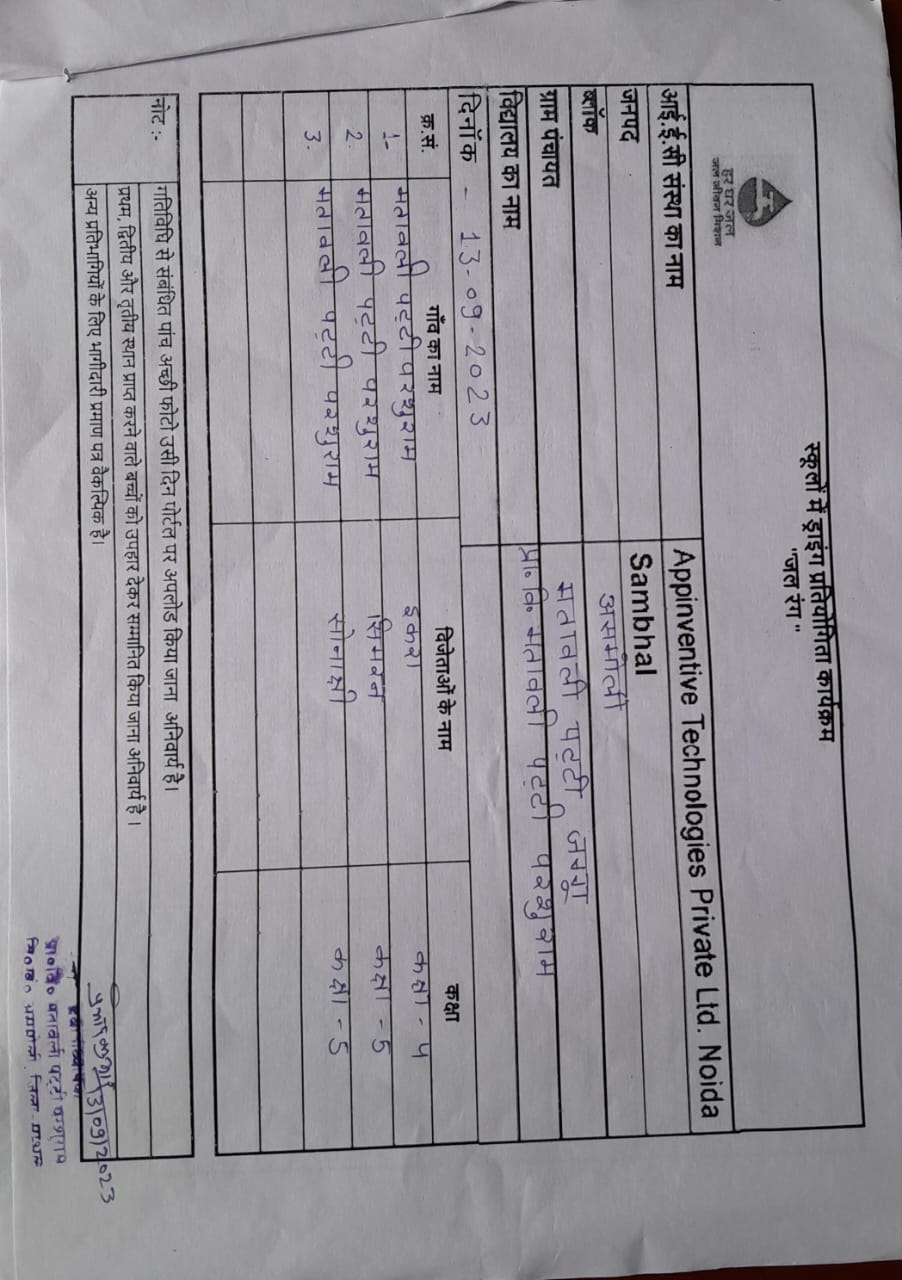 हर घर जल
जल जीवन मिशन
स्कूलों में ड्राइंग प्रतियोगिता कार्यक्रम
"जल रंग"
आई.ई.सी संस्था का नाम Appinventive Technologies Private Ltd. Noida
जनपद Sambhal
ब्लॉक असमोली
ग्राम पंचायत मतावली पट्टी जग्गा
विद्यालय का नाम प्रा० वि० मतावली पट्टी परशुराम
दिनॉक - 13-09-2023
क्र.सं. गाँव का नाम विजेताओं के नाम कक्षा
1- मतावली पट्टी परशुराम इकरा कक्षा - 4
2. मतावली पट्टी परशुराम सिमरन कक्षा - 5
3. मतावली पट्टी परशुराम सोनाक्षी कक्षा - 5
नोट :- गतिविधि से संबंधित पांच अच्छी फोटो उसी दिन पोर्टल पर अपलोड किया जाना अनिवार्य है।
प्रथम, द्वितीय और तृतीय स्थान प्राप्त करने वाले बच्चों को उपहार देकर सम्मानित किया जाना अनिवार्य है।
अन्य प्रतिभागियों के लिए भागीदारी प्रमाण पत्र वैकल्पिक है।
13/09/2023
प्रा०वि० मतावली पट्टी परशुराम